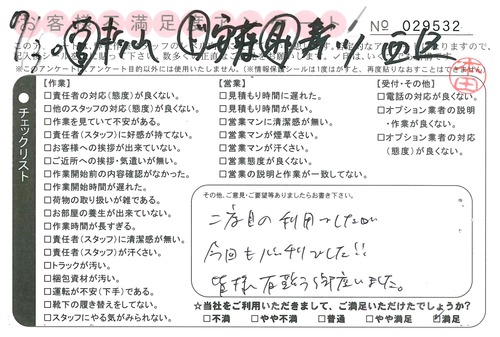 お客様不満足度アンケート
№ 029532
7/30
チェックリスト
【作業】
□責任者の対応(態度)が良くない。
□他のスタッフの対応(態度)が良くない。
□作業を見ていて不安がある。
□責任者(スタッフ)に好感が持てない。
□お客様への挨拶が出来ていない。
□ご近所への挨拶・気遣いが無い。
□作業開始前の内容確認がなかった。
□作業開始時間が遅れた。
□荷物の取り扱いが雑である。
□お部屋の養生が出来ていない。
□作業時間が長すぎる。
□責任者(スタッフ)に清潔感が無い。
□責任者(スタッフ)が汗くさい。
□トラックが汚い。
□梱包資材が汚い。
□運転が安全(下手)である。
□靴下の履き替えをしてない。
□スタッフにやる気がみられない。
【営業】
□見積もり時間に遅れた。
□見積もり時間が長い。
□営業マンに清潔感が無い。
□営業マンが煙草くさい。
□営業マンが汗くさい。
□営業態度が良くない。
□営業の説明と作業が一致してない。
【受付・その他】
□電話の対応が良くない。
□オプション業者の説明
・作業が良くない。
□オプション業者の対応
(態度)が良くない。
その他、ご意見・ご要望等ありましたらお書き下さい。
二度目の利用でしたが
今回もバッチリでした!!
皆様有難う御座いました。
☆当社をご利用いただきまして、ご満足いただけたでしょうか?
□不満 □やや不満 □普通 □やや満足 □満足